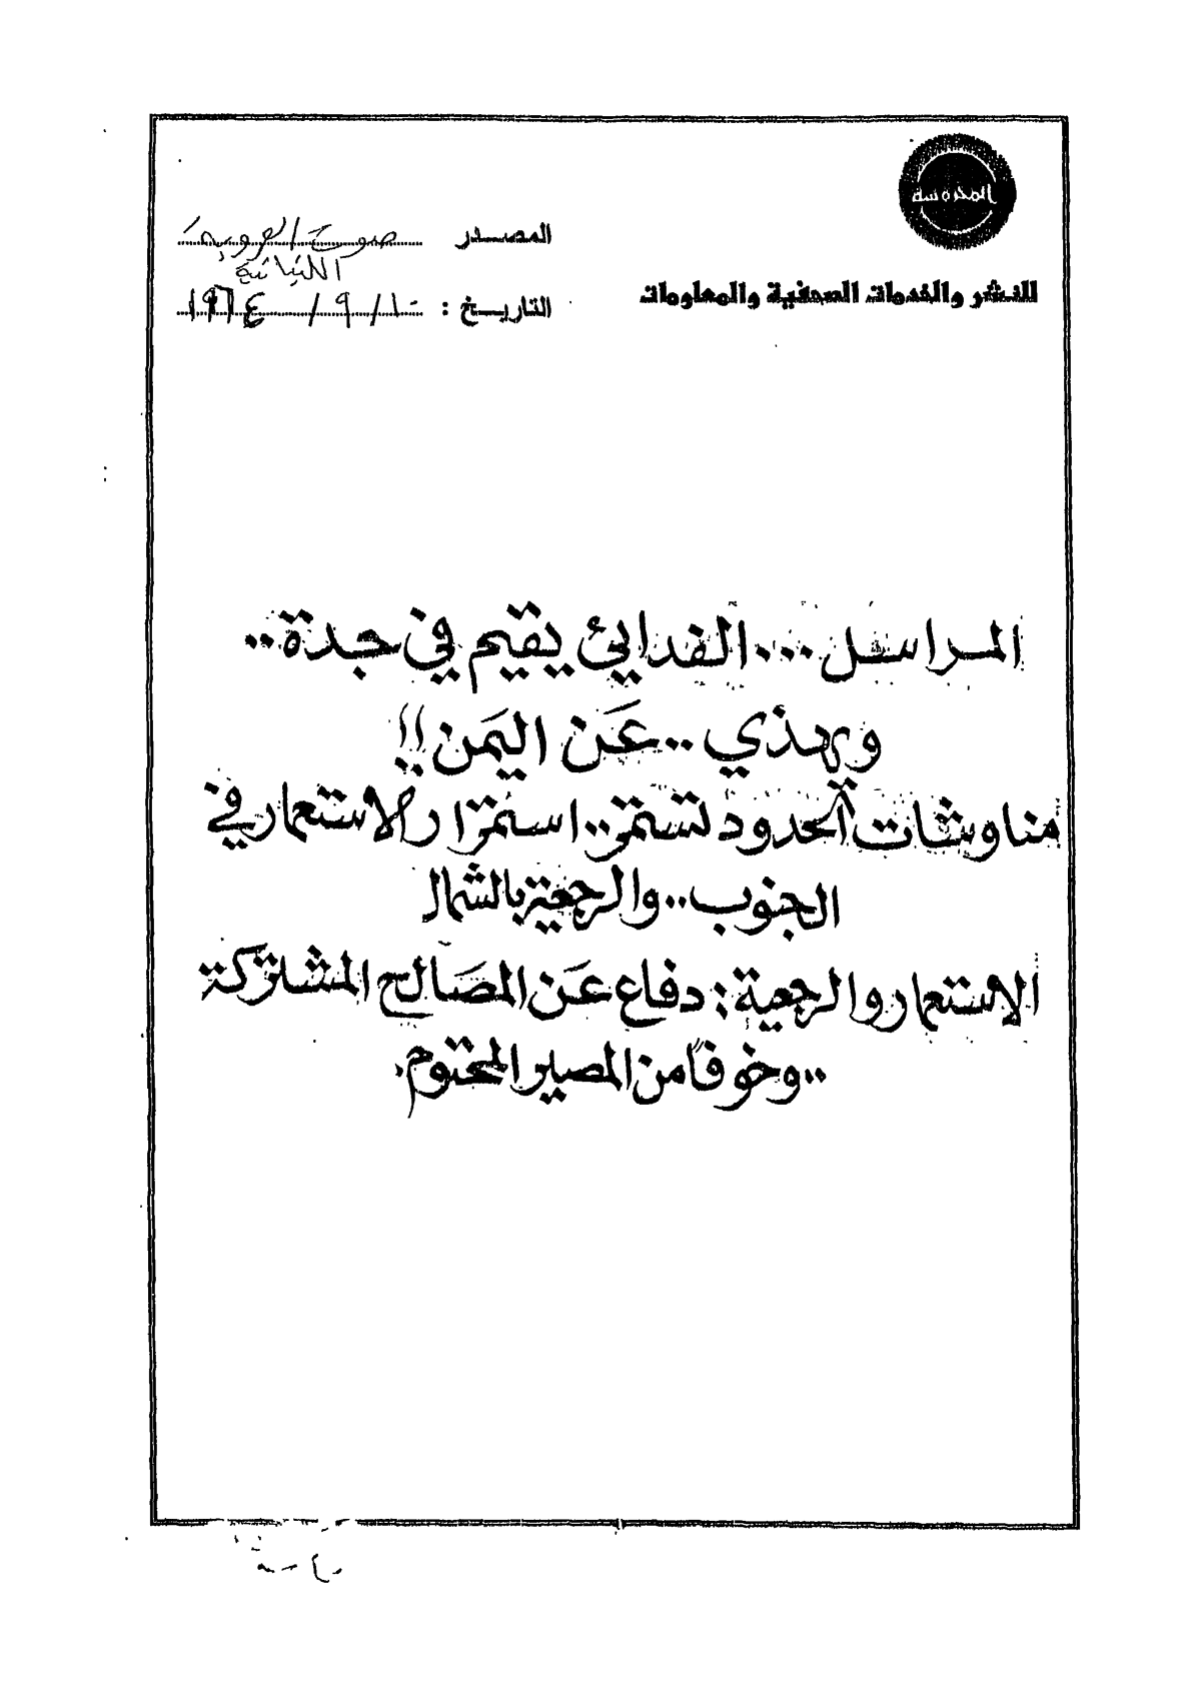 المحروسة
للنشر والخدمات الصحفية والمعلومات
المصدر صوت العروبة
اللبنانية
التاريخ : ١٠ / ٩ / ١٩٦٤
المراسل ... الفدائي يقيم في جدة ..
ويهذي .. عَن اليَمن !!
مناوشات الحدود تستمر .. استمرار الاستعمار في
الجنوب .. والرجعية بالشمال
الاستعمار والرجعية : دفاع عَن المصَالح المشتركة
.. وخوفًا من المصير المحتوم .